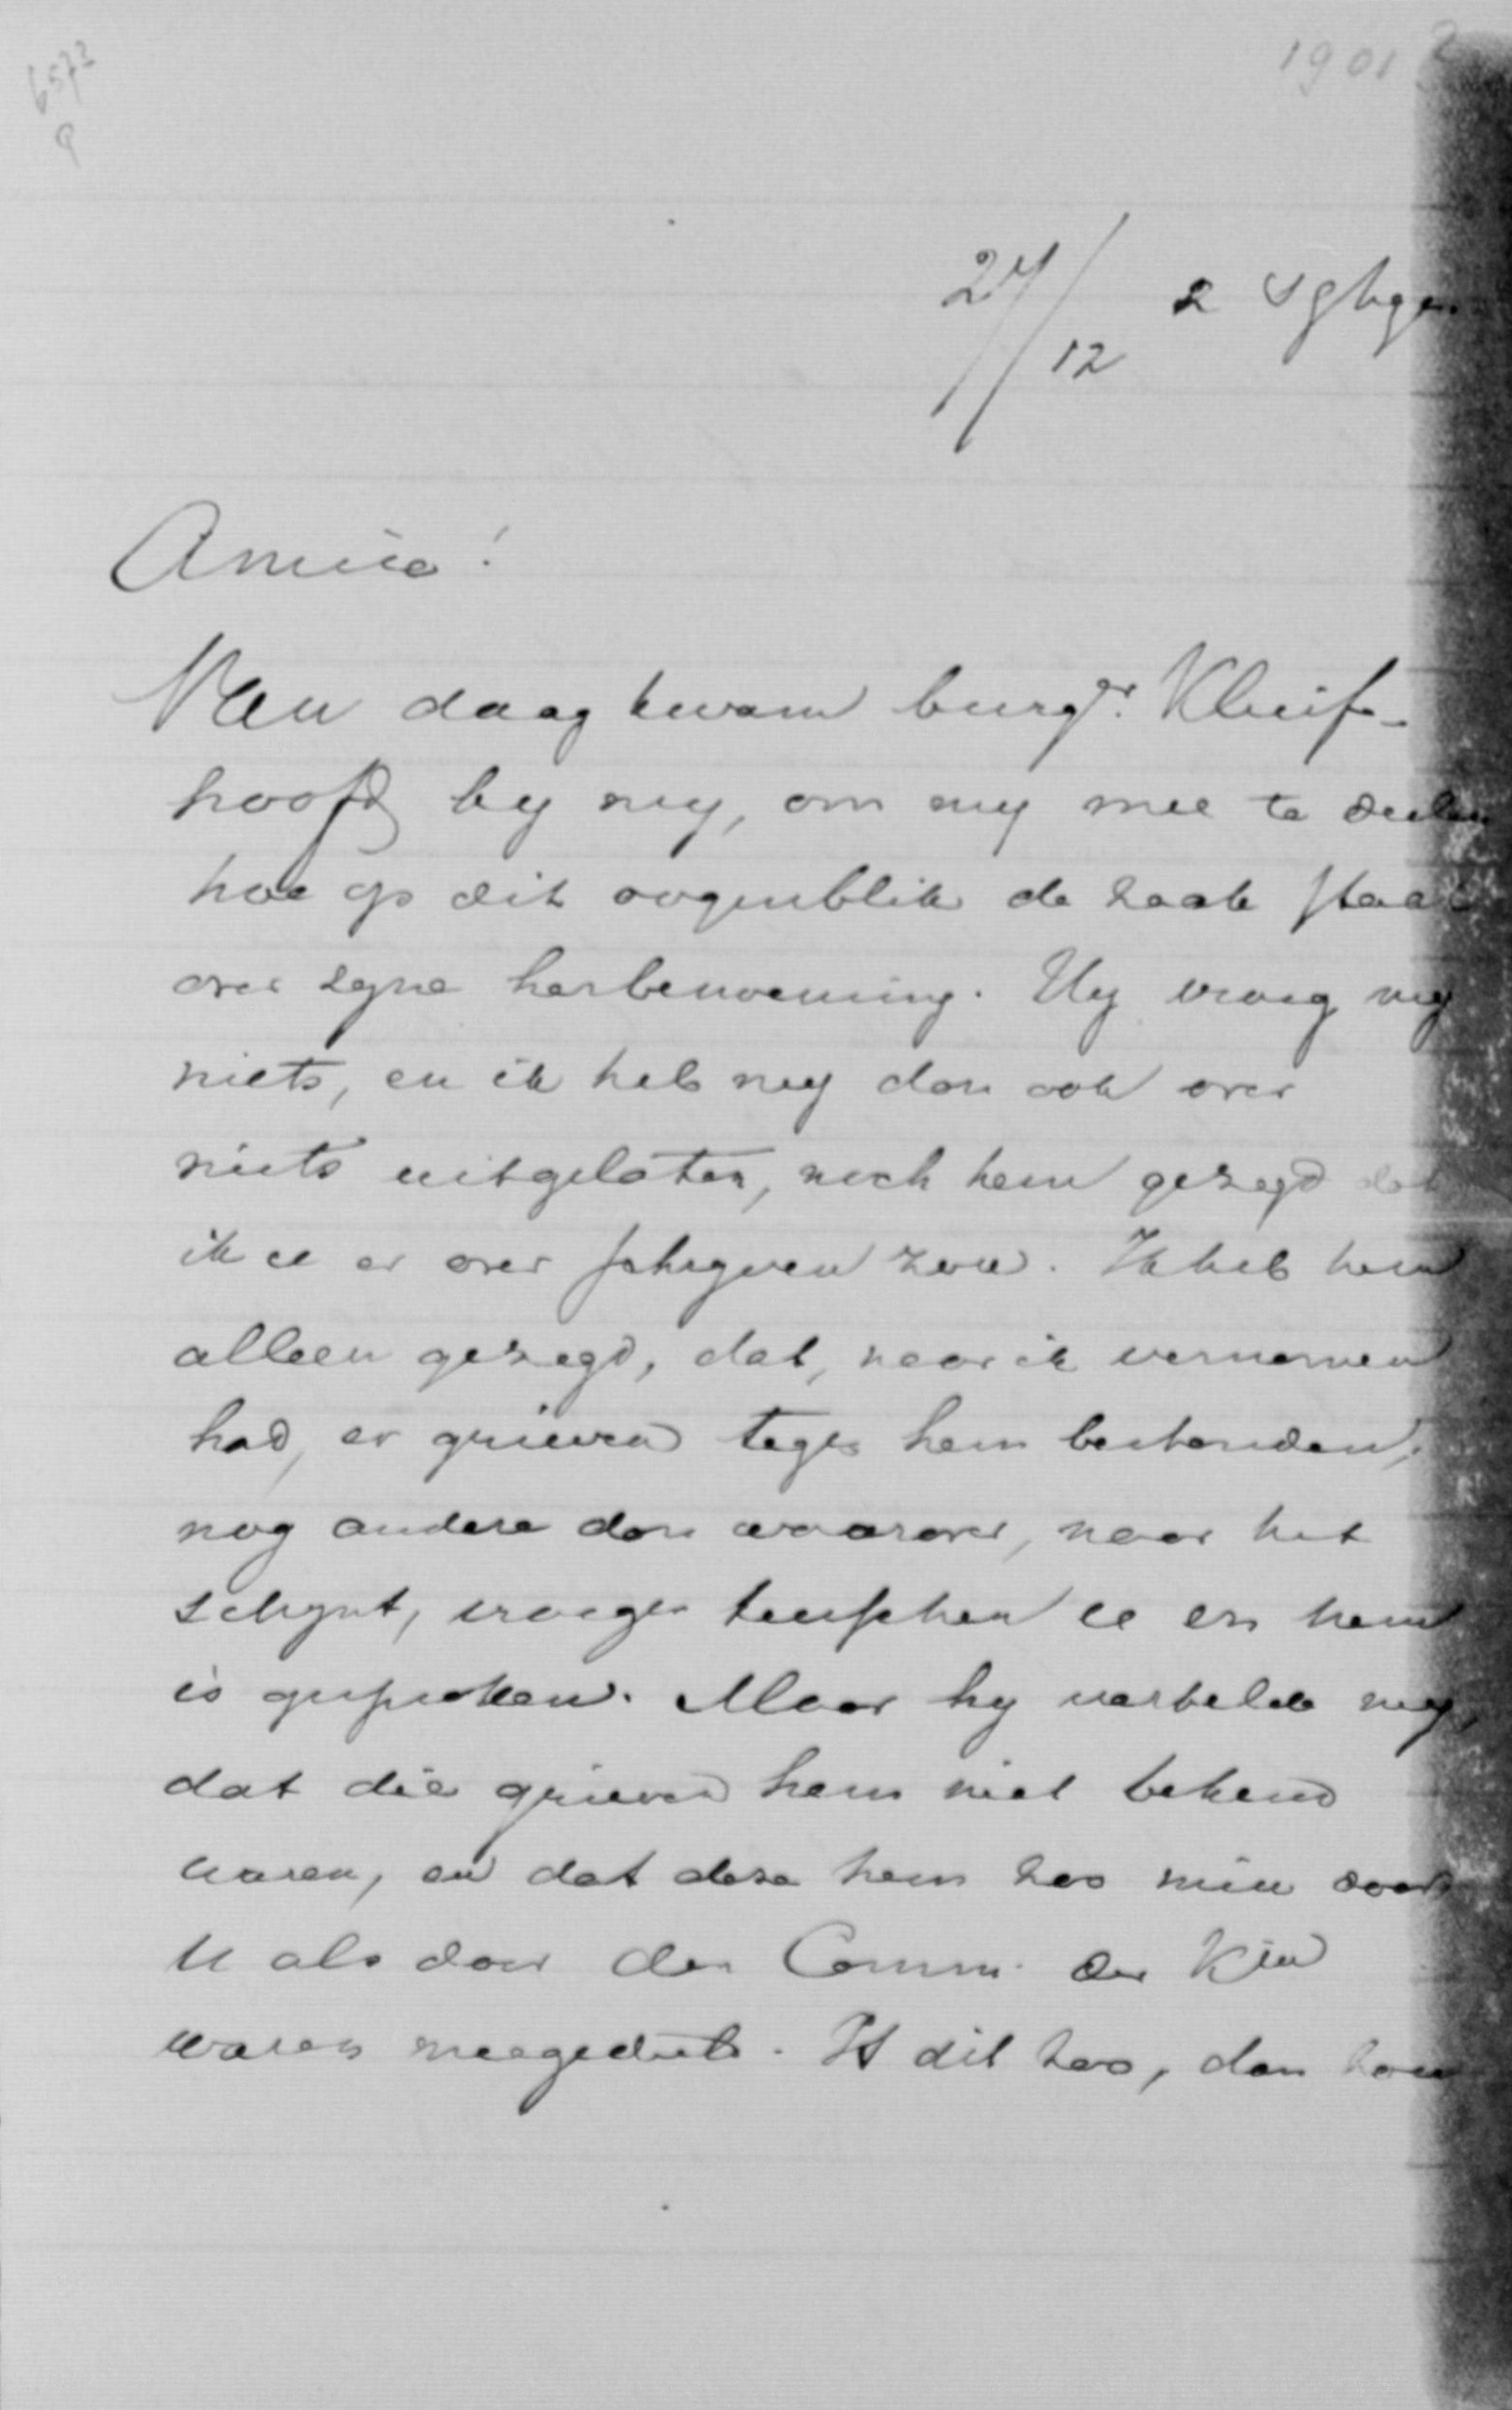 6573
1901
27/12 2 Sghge
Amice!
Van daag kwam burgr. Kluif-
hoofd by my, om my mee te deelen
hoe op dit oogenblik de zaak staat
over zyne herbenoeming. Hy vroeg my
niets, en ik heb my dan ook over
niets uitgelaten, noch hem gezegd dat
ik u er over schryven zou. Ik heb hem
alleen gezegd, dat, naar ik vernomen
had, er grieven tegen hem bestonden,
nog andere dan waarover, naar het
schynt, vroeger tusschen u en hem
is gesproken. Maar hy vertelde my,
dat die grieven hem niet bekend
waren, en dat deze hem zoo min door
U als door den Comm. der Kin
waren meegedeeld. Is dit zoo, dan zou